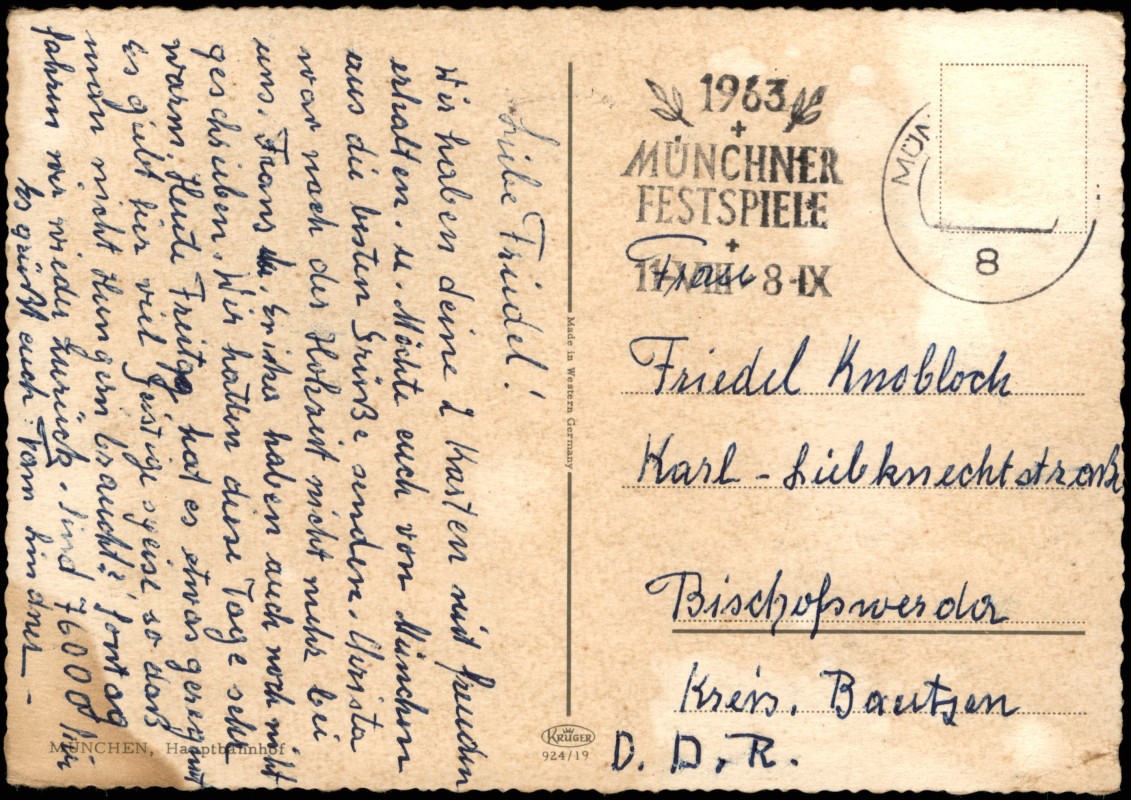 Liebe Friedel!
Wir haben deine 2 Karten mit freuden
erhalten. u. Möchte euch von München
aus die besten Grüße senden. Christa
war nach der Hohzeit nicht mehr bei
uns. Frans u. Erikes haben auch noch nicht
geschrieben. Wir hatten diese Tage sehr
warm. Heute Freitag hat es etwas geregnet
Es giebt hir viel Geistige speise so daß
man nicht Hungern braucht?
fahren wir wieder Zurück. sind 76000 hir
Es grüßt euch: Fam
1963
MÜNCHNER
FESTSPIELE
11-VIII - 8-IX
MÜN
8
Frau
Friedel Knobloch
Karl-Liebknechtstraße
Bischofswerda
Kreis. Bautzen
D. D. R.
Made in Western Germany
KRÜGER
924/19
MÜNCHEN, Hauptbahnhof